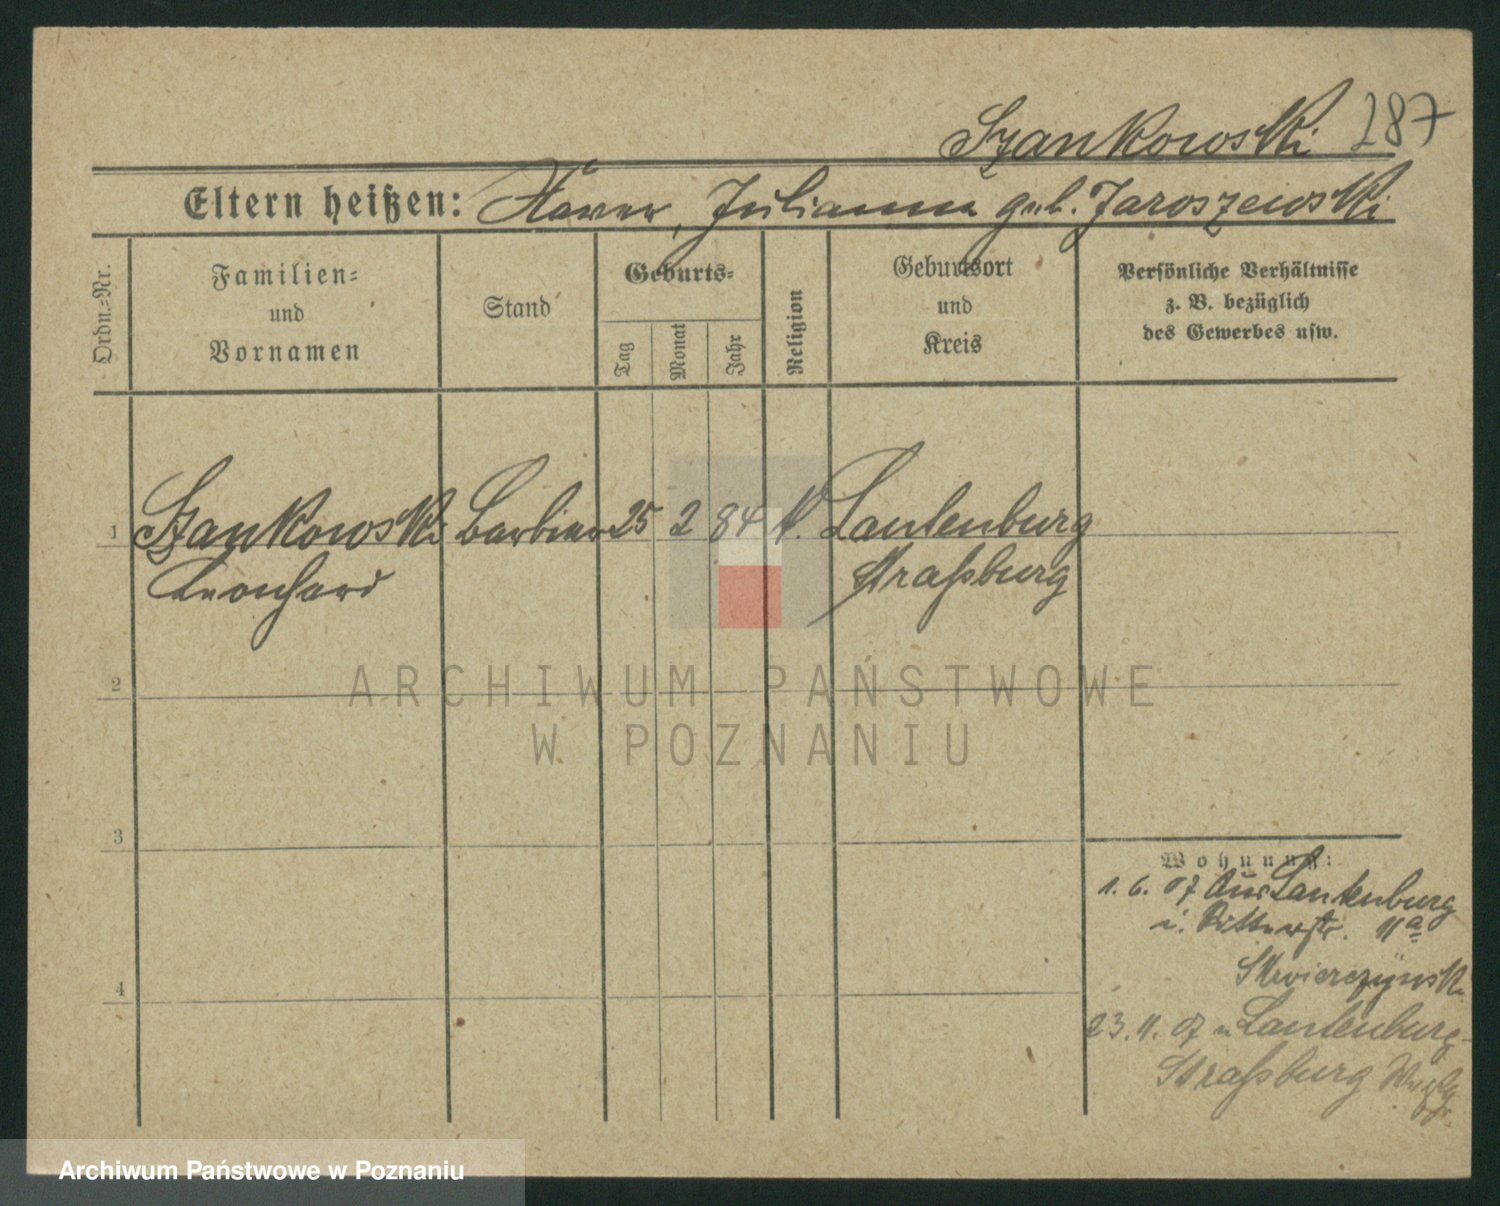 Szankowski 287
Eltern heißen: Xaver, Julianna geb. Jaroszewski
Ordn.-Nr.
Familien-
und
Vornamen
Stand
Geburts-
Tag
Monat
Jahr
Religion
Geburtsort
und
Kreis
Persönliche Verhältnisse
z. B. bezüglich
des Gewerbes usw.
1 Szankowski Barbier 25 2 84 k. Lautenburg
Leonhard Straßburg
2
ARCHIWUM PAŃSTWOWE
W POZNANIU
3
Wohnung:
1. 6. 07 Aus Lautenburg
i. Ritterstr. 11a
Skwierczynski
4
23. 11. 07 n Lautenburg
Straßburg Westpr.
Archiwum Państwowe w Poznaniu